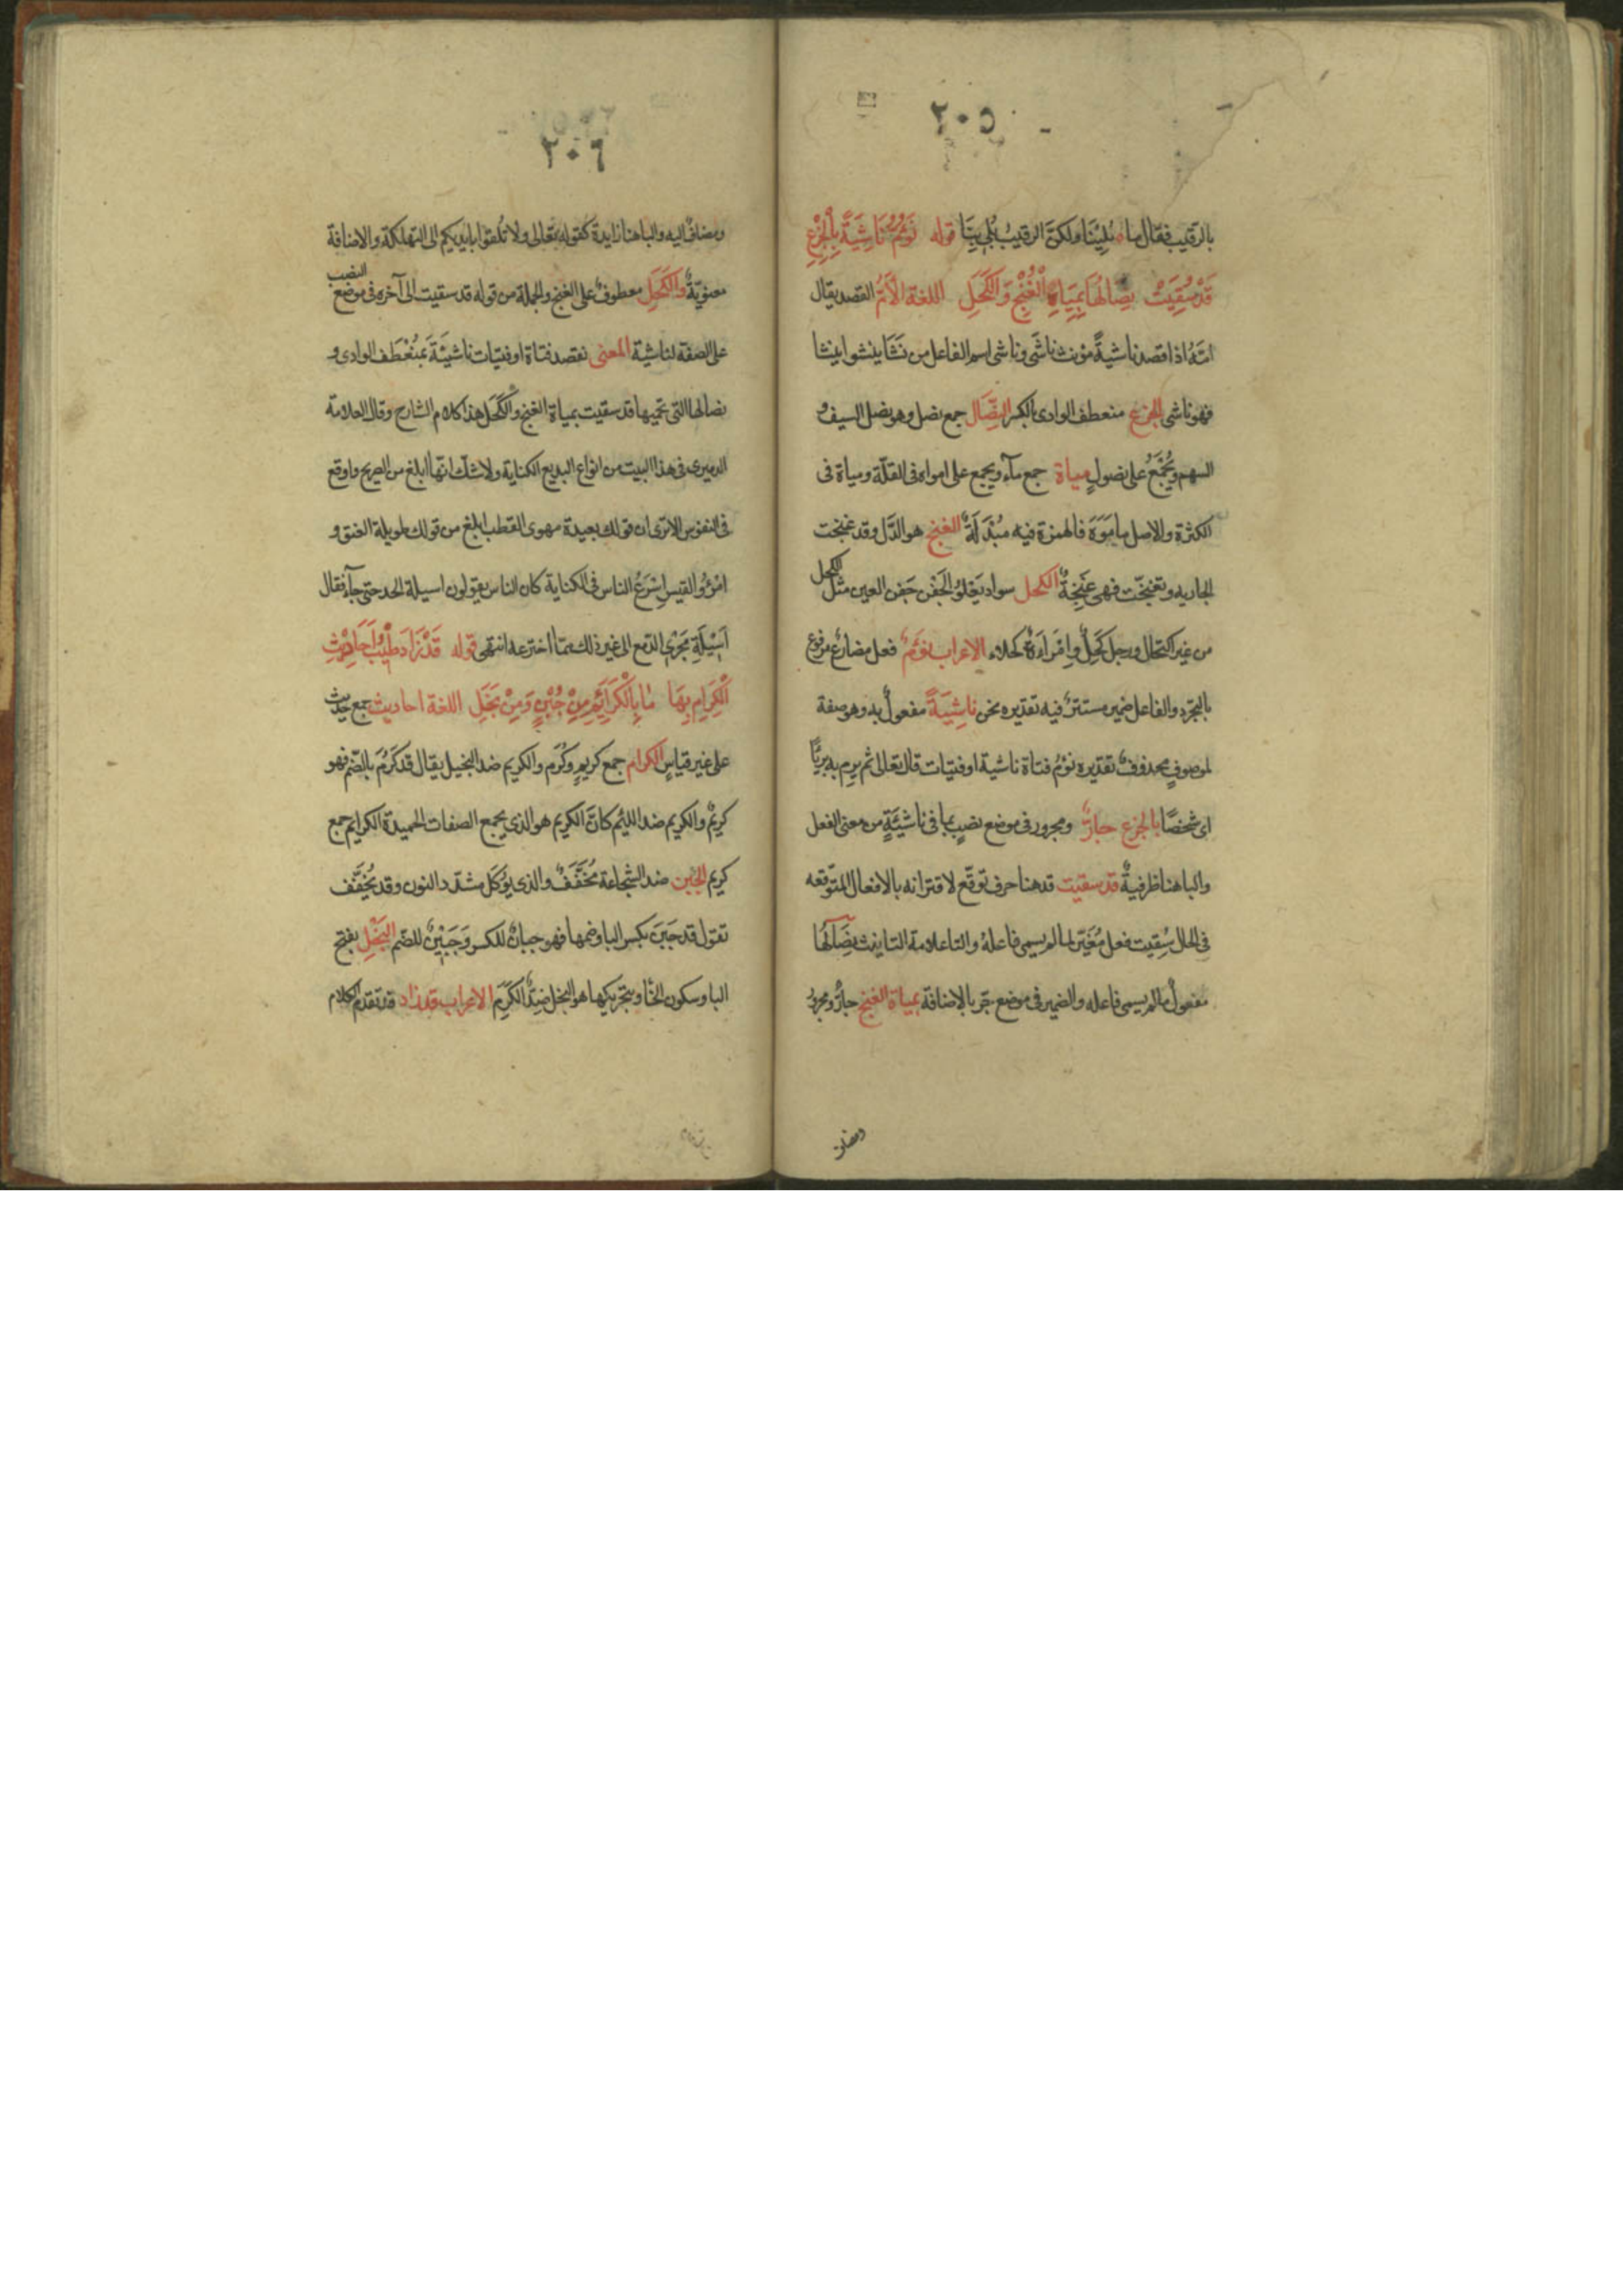 ٢٠٥
بالرقيب فقال ما بُلِينَا ولكنّ الرقيب بُلي بِنَا قوله نَؤُمُّ نَاشِيَةً بِالْجِزْعِ
قَدْ سُقِيَتْ نِصَالُهَا بِمِيَاهِ الْغُنْجِ وَالْكَحَلِ اللغة الأَمُّ القصد يقال
امّهُ اذا قصده ناشيةً مؤنث ناشئ وناشى اسم الفاعل من نَشَا ينشوا ينشا
فهو ناشى الجزع منعطف الوادى بالكسر النِّصَال جمع نصل وهو نصل السيف و
السهم ويُجْمَعُ على نصولٍ مياة جمع مآء ويجمع على امواه فى القلّة ومياة فى
الكثرة والاصل ما مَوَهَ فالهمزة فيه مُبْدَلَةٌ الغنج هو الدَّل وقد غنجت
الجاريه وتغنجّت فهى غَنِجَةٌ الكحل سواد يَعْلوُ الجَفْن جَفن العين مثل الكحل
من غير اكتحال ورجل كَحِلٌ وامْرَاءَةٌ كحلاء الاعراب نؤمّ فعل مضارع مرفوع
بالتجرّد والفاعل ضمير مستترٌ فيه تقديره نحن ناشِيَةً مفعولٌ به وهو صفة
لموصوفٍ محذوفٌ تقديره نؤمُّ فتاة ناشية او فتيات قال تعالى ثم يرم به بريًّا
اى شخصًا بالجزع جارٌّ ومجرور فى موضع نصبٍ بما فى ناشيَةٍ من معنى الفعل
والبا هنا ظرفيةٌ قد سقيت قد هنا حرف توقّع لاقترانه بالافعال المتوّقعه
فى الحال سُقِيت فعل مُغَيّر لما لم يسمى فاعلهُ والتا علامة التانيث نِصَالُهَا
مفعولُ ما لم يسمى فاعله والضمير فى موضع جّر بالاضافة بمياة الغنج جارٌّ ومجرورٌ
ومضاف
٢٠٦
ومضافٌ اليه والبا هنا زايدة كقوله تعالى ولا تُلقوا بايديكم الى التهلكة والاضافة
معنويّةٌ والكَحَل معطوفٌ على الغنج والجملة من قوله قد سقيت الى آخره فى موضع النصب
على الصفة لناشية المعنى نقصد فتاة او فتيات ناشيَة بمُنْعَطَف الوادى و
نصالها التى تحميها قد سقيت بمياة الغنج والكَحَل هذا كلام الشارح وقال العلامة
الدميرى فى هذا البيت من انواع البديع الكناية ولا شكّ انّها ابلغ من الصريح واوقع
فى النفوس الا ترى ان قولك بعيدة مهوى القطب ابلغ من قولك طويلة العنق و
امْرؤُ القيس اسْرَعُ الناس فى الكناية كان الناس يقولون اسيلة الخد حتى جآ فقال
اَسِيْلَةِ مَجْرَى الدّمع الى غير ذلك ممّا اخترعه انتهى قوله قَدْ زَادَ طَيْبَ اَحَادِيْثِ
الْكِرَامِ بِهَا مَا بِالْكَرَايِمِ مِنْ جُبْنٍ وَمِنْ بَخَلِ اللغة احاديث جمع حديث
على غير قياسٍ الكرام جمع كريمٍ وكُرَم والكريم ضد البخيل يقال قد كَرُمَ بالضّم فهو
كريمٌ والكريم ضد الليئم كانّ الكريم هو الذى يجمع الصفات الحميدة الكرايم جمع
كريم الجُبن ضد الشجاعة مُخَفّفٌ والذى يُوكَل مشدّد النون وقد يُخفَّف
تقول قد جَبِنَ بكسر البا وضمها فهو جبانٌ للكسر وَجَبِيْنٌ للضّم البَخْلِ بفتح
البا وسكون الخَا وبتحريكها هو البخل ضِدّ الكَرَم الاعراب قد زاد قد تقدم الكلام